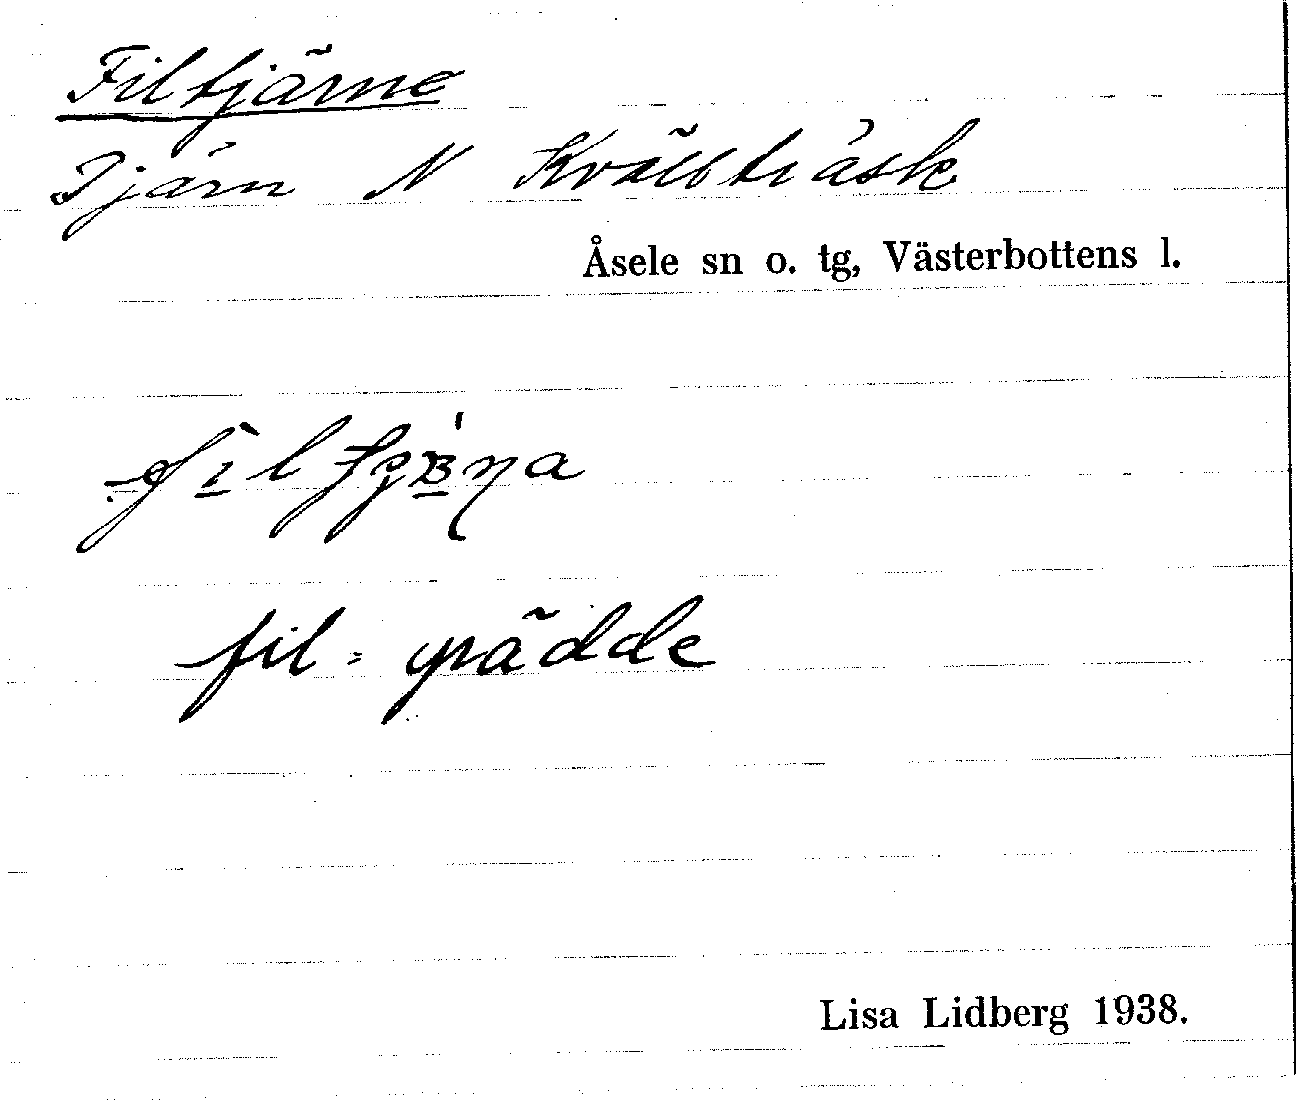 Filtjärne
Tjärn N Kvällträsk
Åsele sn o. tg, Västerbottens l.
fil = grädde
Lisa Lidberg 1938.